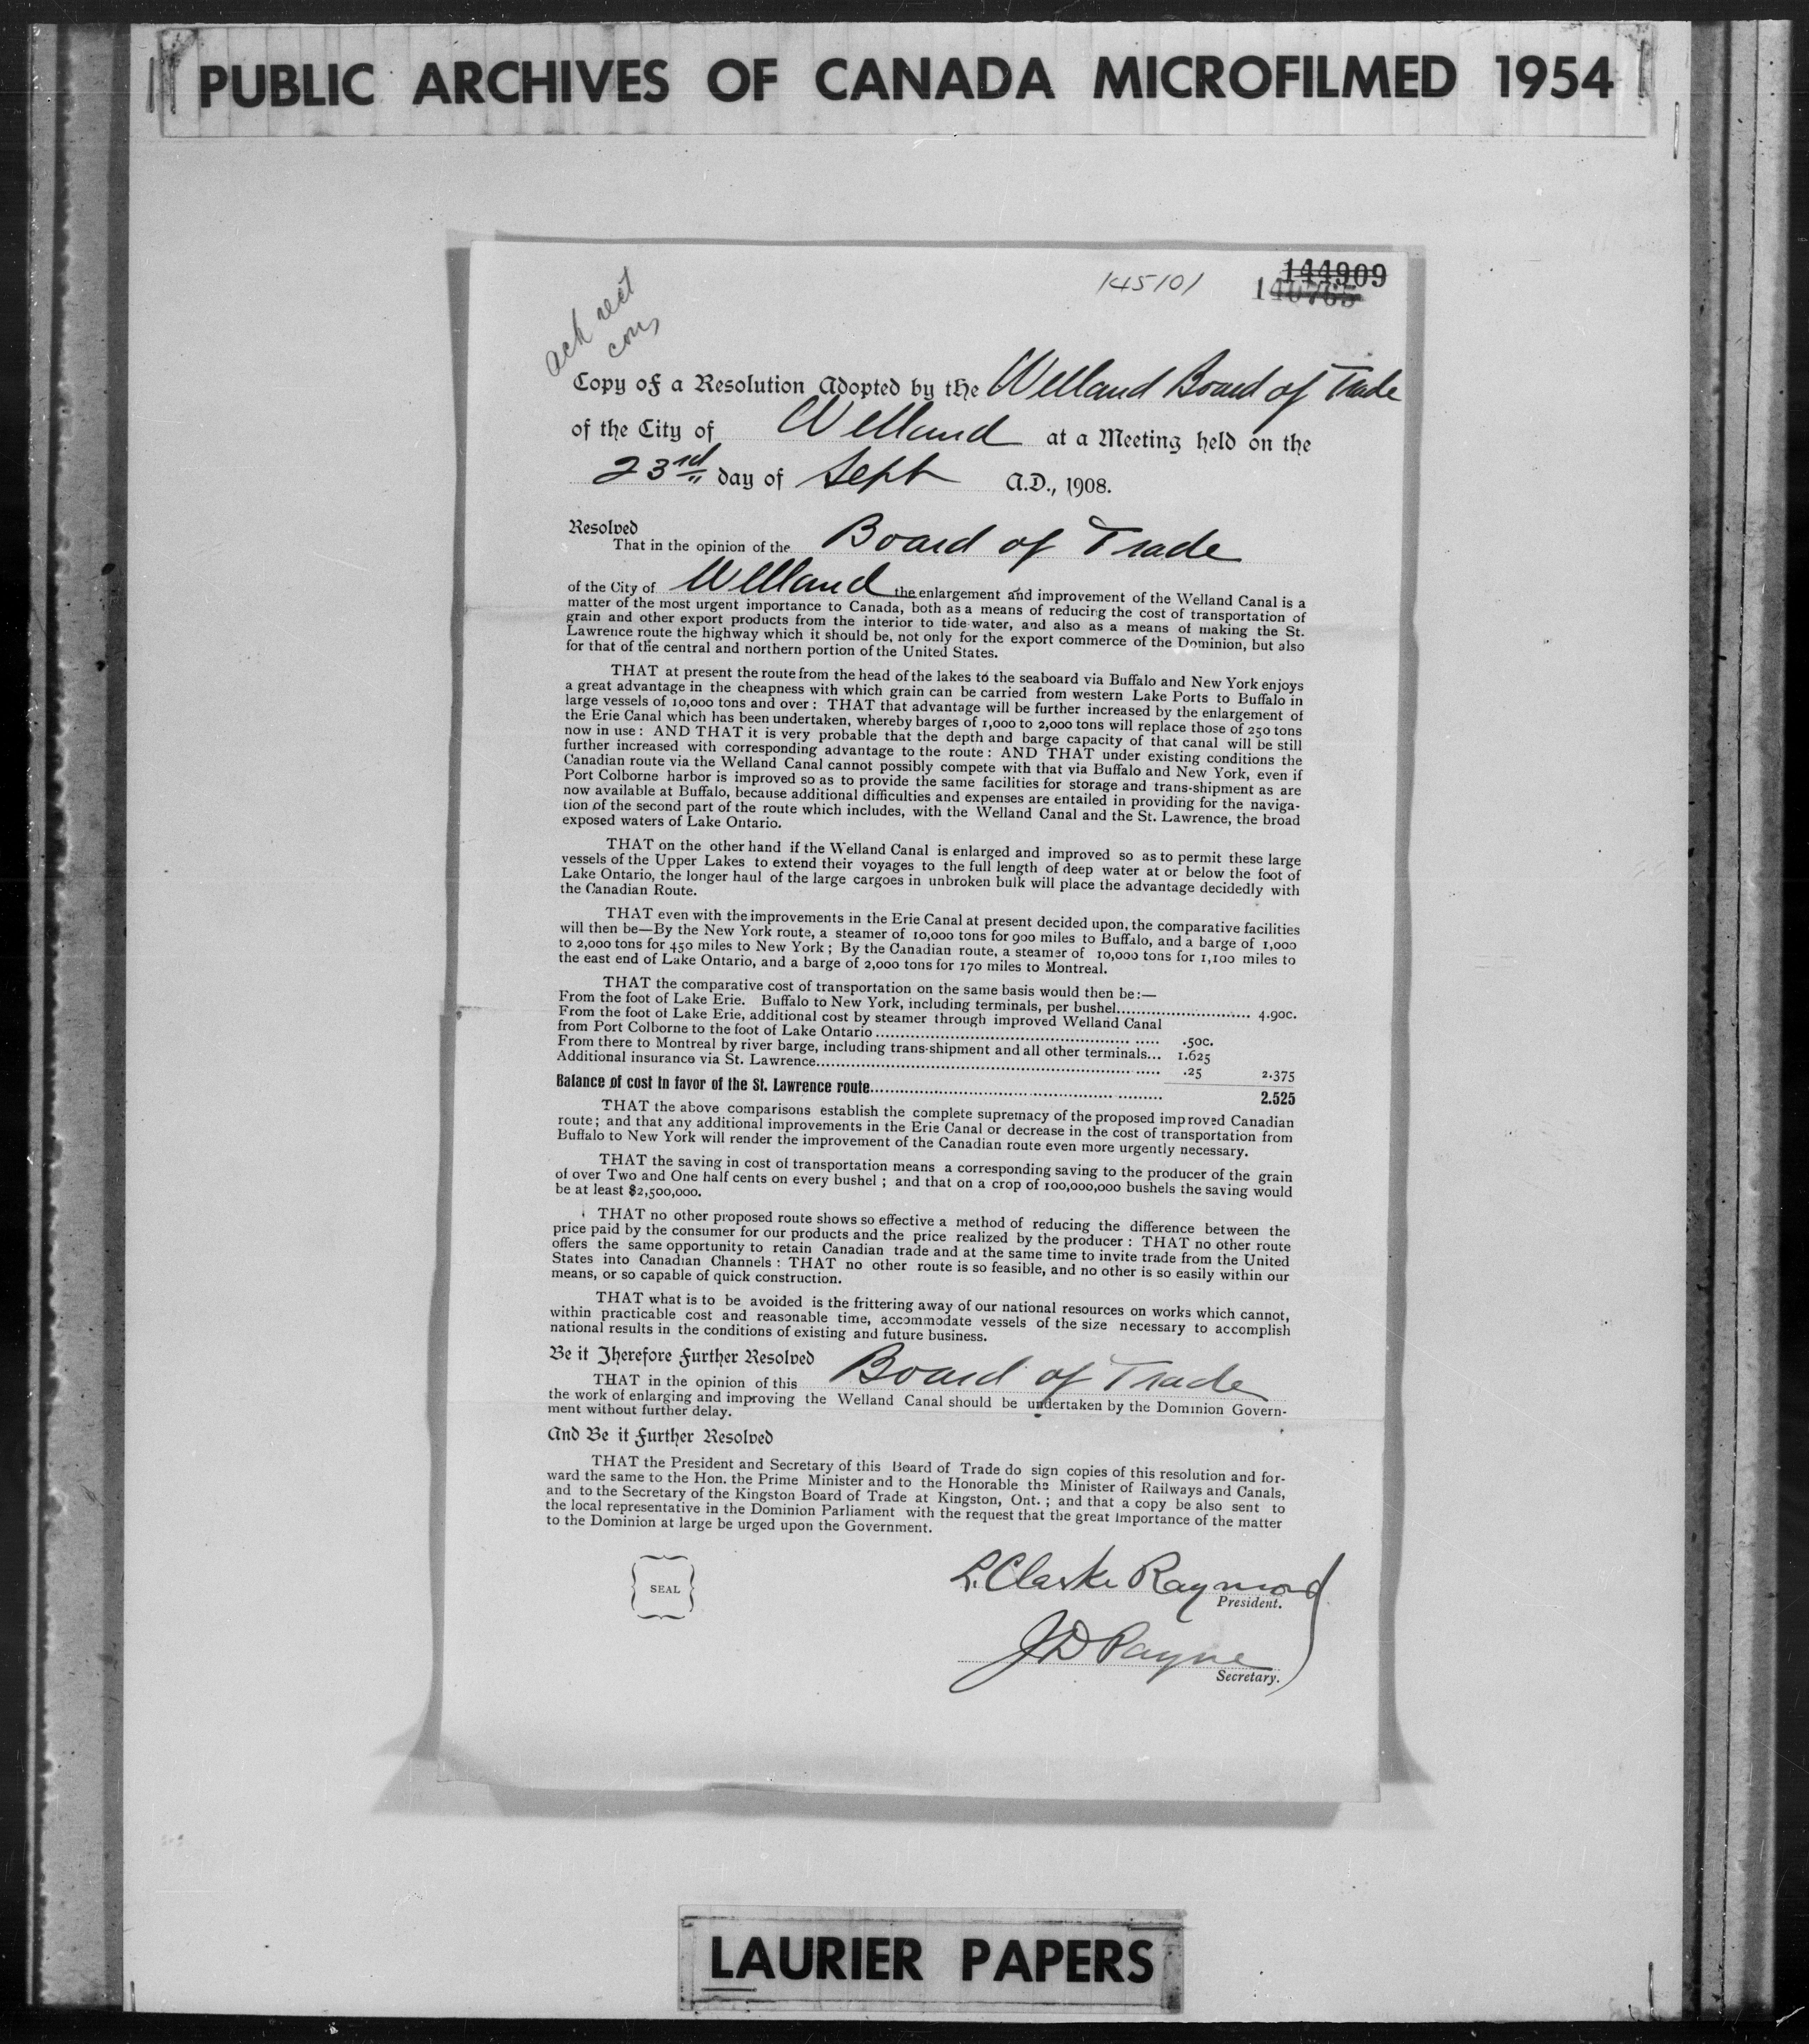 PUBLIC ARCHIVES OF CANADA MICROFILMED 1954
145101
144909
140765
ack rect
Copy of a Resolution Adopted by the Welland Board of Trade
of the City of Welland at a Meeting held on the
23rd day of Sept A.D., 1908.
Resolved
That in the opinion of the Board of Trade
of the City of Welland the enlargement and improvement of the Welland Canal is a
matter of the most urgent importance to Canada, both as a means of reducing the cost of transportation of
grain and other export products from the interior to tide-water, and also as a means of making the St.
Lawrence route the highway which it should be, not only for the export commerce of the Dominion, but also
for that of the central and northern portion of the United States.
THAT at present the route from the head of the lakes to the seaboard via Buffalo and New York enjoys
a great advantage in the cheapness with which grain can be carried from western Lake Ports to Buffalo in
large vessels of 10,000 tons and over : THAT that advantage will be further increased by the enlargement of
the Erie Canal which has been undertaken, whereby barges of 1,000 to 2,000 tons will replace those of 250 tons
now in use : AND THAT it is very probable that the depth and barge capacity of that canal will be still
further increased with corresponding advantage to the route : AND THAT under existing conditions the
Canadian route via the Welland Canal cannot possibly compete with that via Buffalo and New York, even if
Port Colborne harbor is improved so as to provide the same facilities for storage and trans-shipment as are
now available at Buffalo, because additional difficulties and expenses are entailed in providing for the naviga-
tion of the second part of the route which includes, with the Welland Canal and the St. Lawrence, the broad
exposed waters of Lake Ontario.
THAT on the other hand if the Welland Canal is enlarged and improved so as to permit these large
vessels of the Upper Lakes to extend their voyages to the full length of deep water at or below the foot of
Lake Ontario, the longer haul of the large cargoes in unbroken bulk will place the advantage decidedly with
the Canadian Route.
THAT even with the improvements in the Erie Canal at present decided upon, the comparative facilities
will then be—By the New York route, a steamer of 10,000 tons for 900 miles to Buffalo, and a barge of 1,000
to 2,000 tons for 450 miles to New York ; By the Canadian route, a steamer of 10,000 tons for 1,100 miles to
the east end of Lake Ontario, and a barge of 2,000 tons for 170 miles to Montreal.
THAT the comparative cost of transportation on the same basis would then be :—
From the foot of Lake Erie. Buffalo to New York, including terminals, per bushel........ 4.90c.
From the foot of Lake Erie, additional cost by steamer through improved Welland Canal
from Port Colborne to the foot of Lake Ontario........ .50c.
From there to Montreal by river barge, including trans-shipment and all other terminals... 1.625
Additional insurance via St. Lawrence........ .25 2.375
Balance of cost in favor of the St. Lawrence route........ 2.525
THAT the above comparisons establish the complete supremacy of the proposed improved Canadian
route ; and that any additional improvements in the Erie Canal or decrease in the cost of transportation from
Buffalo to New York will render the improvement of the Canadian route even more urgently necessary.
THAT the saving in cost of transportation means a corresponding saving to the producer of the grain
of over Two and One half cents on every bushel ; and that on a crop of 100,000,000 bushels the saving would
be at least $2,500,000.
THAT no other proposed route shows so effective a method of reducing the difference between the
price paid by the consumer for our products and the price realized by the producer : THAT no other route
offers the same opportunity to retain Canadian trade and at the same time to invite trade from the United
States into Canadian Channels : THAT no other route is so feasible, and no other is so easily within our
means, or so capable of quick construction.
THAT what is to be avoided is the frittering away of our national resources on works which cannot,
within practicable cost and reasonable time, accommodate vessels of the size necessary to accomplish
national results in the conditions of existing and future business.
Be it Therefore Further Resolved
THAT in the opinion of this Board of Trade
the work of enlarging and improving the Welland Canal should be undertaken by the Dominion Govern-
ment without further delay.
And Be it Further Resolved
THAT the President and Secretary of this Board of Trade do sign copies of this resolution and for-
ward the same to the Hon. the Prime Minister and to the Honorable the Minister of Railways and Canals,
and to the Secretary of the Kingston Board of Trade at Kingston, Ont. ; and that a copy be also sent to
the local representative in the Dominion Parliament with the request that the great importance of the matter
to the Dominion at large be urged upon the Government.
SEAL
L. Clarke Raymond
President.
JD Payne
Secretary.
LAURIER PAPERS